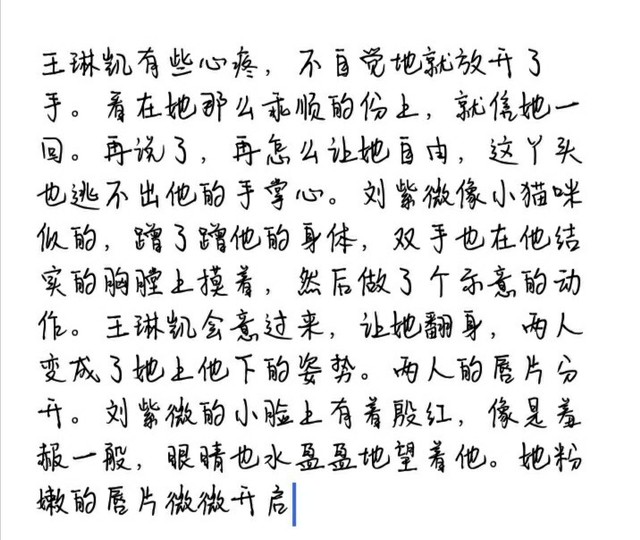 王琳凯有些心疼，不自觉地就放开了
手。看在她那么乖顺的份上，就信她一
回。再说了，再怎么让她自由，这丫头
也逃不出他的手掌心。刘紫微像小猫咪
似的，蹭了蹭他的身体，双手也在他结
实的胸膛上摸着，然后做了个示意的动
作。王琳凯会意过来，让她翻身，两人
变成了她上他下的姿势。两人的唇片分
开。刘紫微的小脸上有着殷红，像是羞
赧一般，眼睛也水盈盈地望着他。她粉
嫩的唇片微微开启